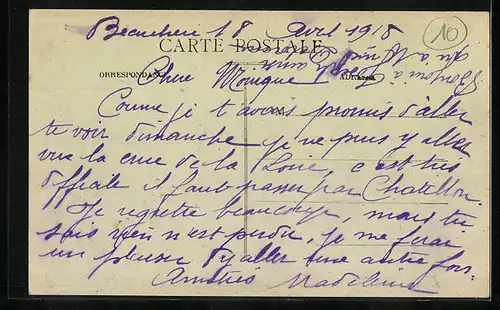 18 Avril 1918
CARTE POSTALE
CORRESPONDANCE
ADRESSE
10
Chère Monique
Comme je t avais promis d'aller
te voir dimanche je ne peus y aller
vue la crue de la Loire, c est très
difficile il faut passer par Chatillon.
Je regrette beaucoup, mais tu
sais rien n'est perdu, je me ferai
un plaisir d'y aller une autre fois.
Amitiés Madeleine
Bonjour à